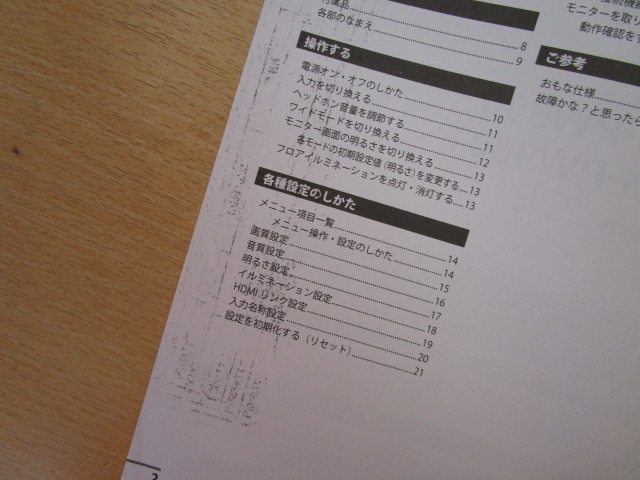 付属品
各部のなまえ 8
9
操作する
電源オン・オフのしかた 10
入力を切り換える 11
ヘッドホン音量を調節する 11
ワイドモードを切り換える 12
モニター画面の明るさを切り換える 13
各モードの初期設定値（明るさ）を変更する 13
フロアイルミネーションを点灯・消灯する 13
各種設定のしかた
メニュー項目一覧 14
メニュー操作・設定のしかた 14
画質設定 15
音質設定 16
明るさ設定 17
イルミネーション設定 18
HDMIリンク設定 19
入力名称設定 20
設定を初期化する（リセット） 21
モニターを取り
動作確認をす
ご参考
おもな仕様
故障かな？と思ったら
2